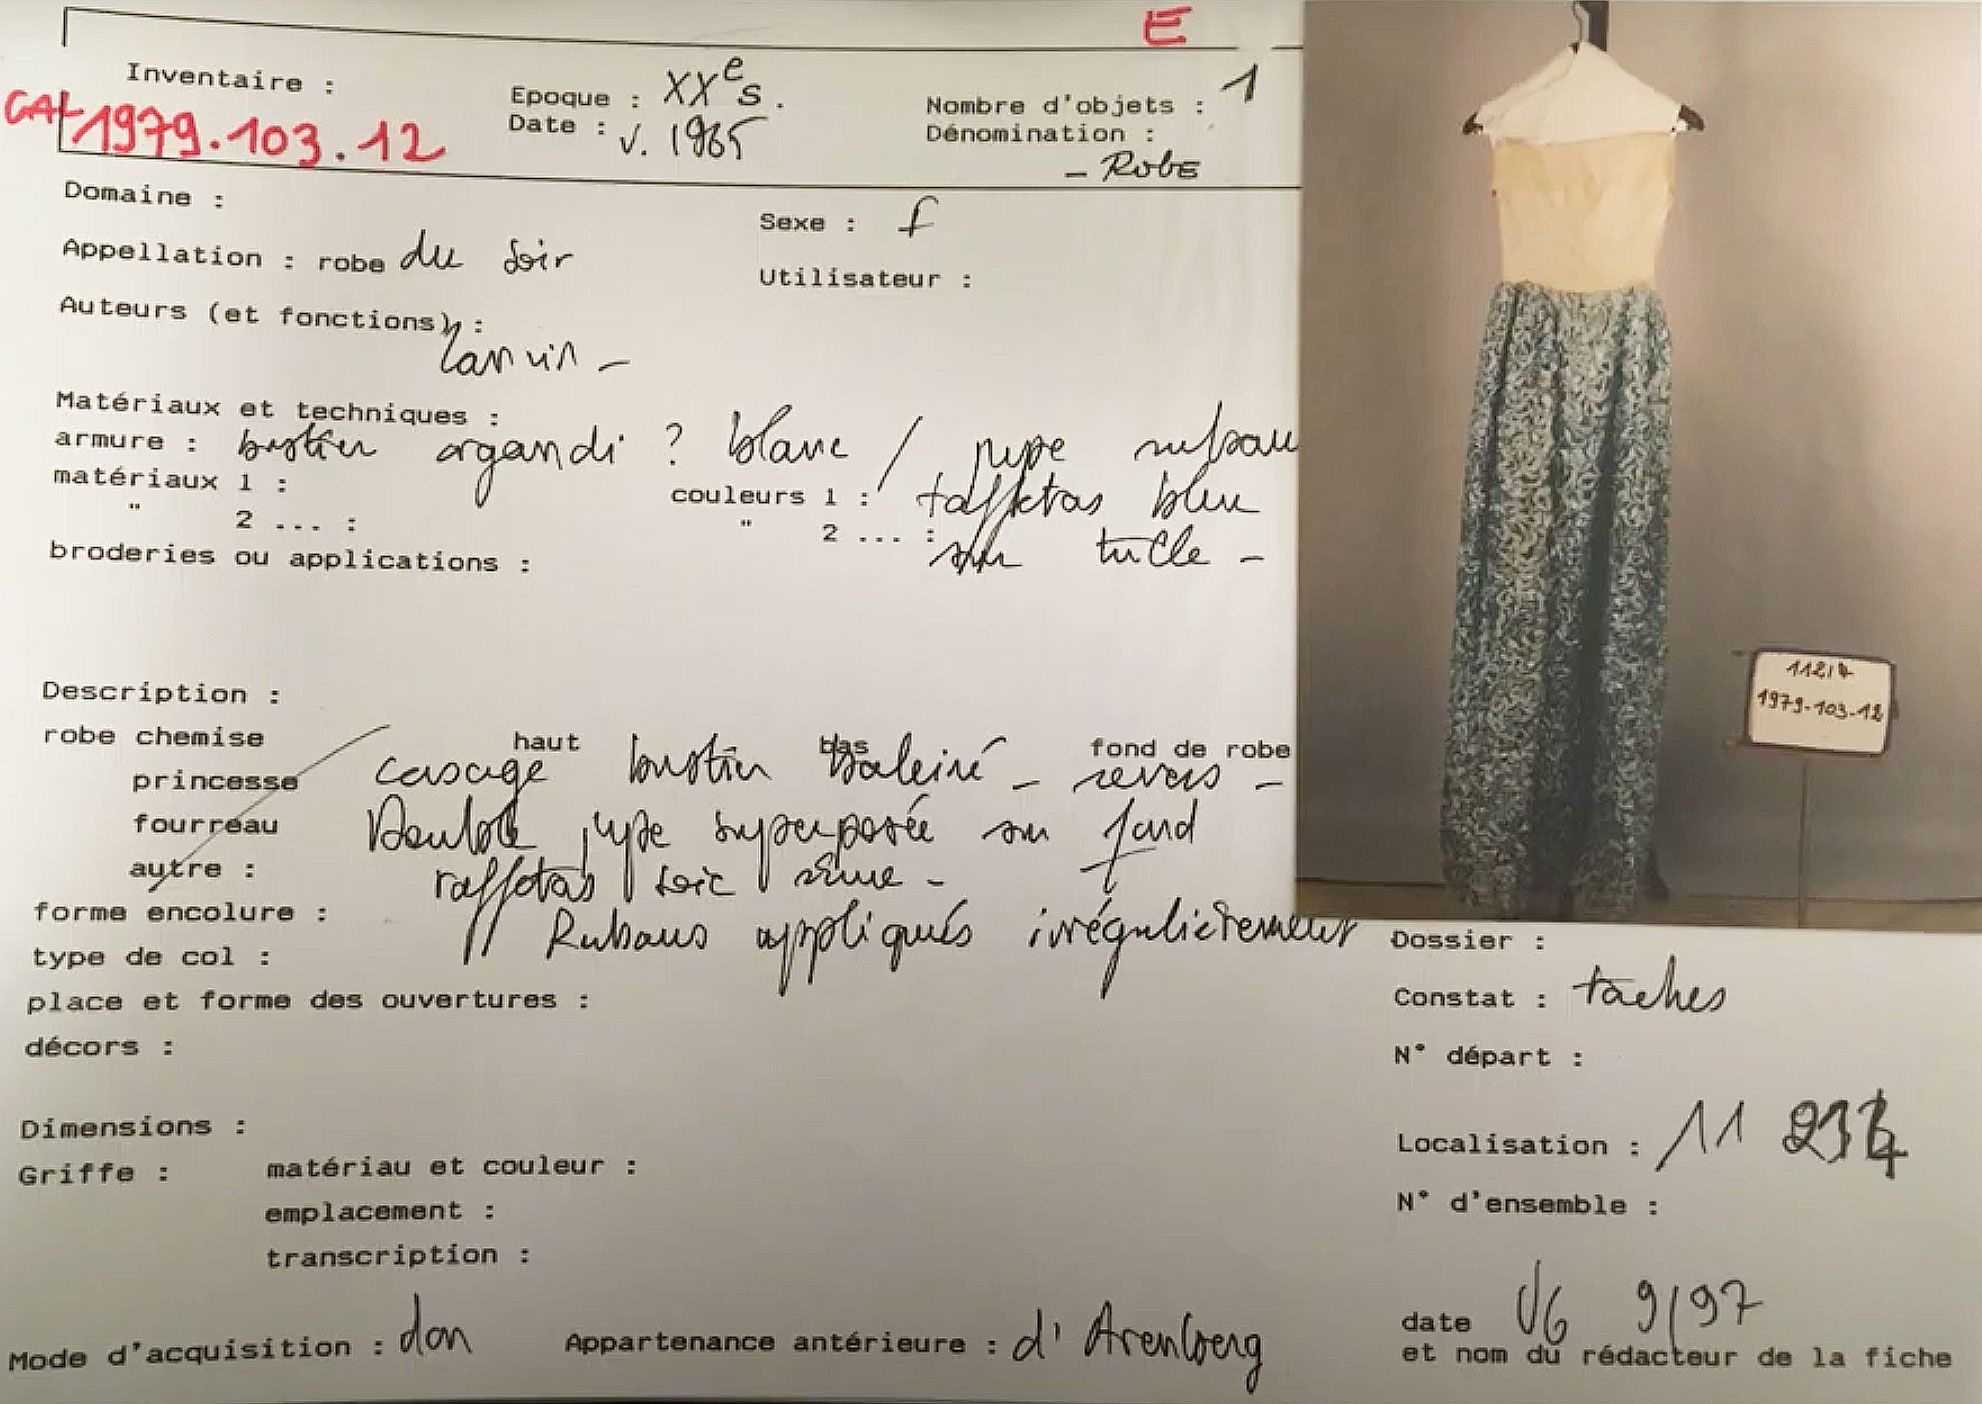 E
Inventaire :
GAL 1979.103.12
Epoque : XXe s.
Date : v. 1965
Nombre d'objets : 1
Dénomination :
- Robe
Domaine :
Sexe : f
Appellation : robe du soir
Utilisateur :
Auteurs (et fonctions) :
Lanvin -
Matériaux et techniques :
armure : bustier organdi ? blanc / jupe ruban
matériaux 1 :
couleurs 1 : taffetas bleu
" 2 ... :
" 2 ... :
sur tulle -
broderies ou applications :
Description :
robe chemise
haut
bas
fond de robe
princesse
corsage bustier baleiné - revers -
fourreau
Double jupe superposée sur fond
autre :
taffetas soie
forme encolure :
Rubans appliqués irrégulièrement
type de col :
place et forme des ouvertures :
décors :
Dimensions :
Griffe :
matériau et couleur :
emplacement :
transcription :
Mode d'acquisition : don
Appartenance antérieure : d'Arenberg
1979-103-12
Dossier :
Constat : taches
N° départ :
Localisation : 11
N° d'ensemble :
date VG 9/97
et nom du rédacteur de la fiche